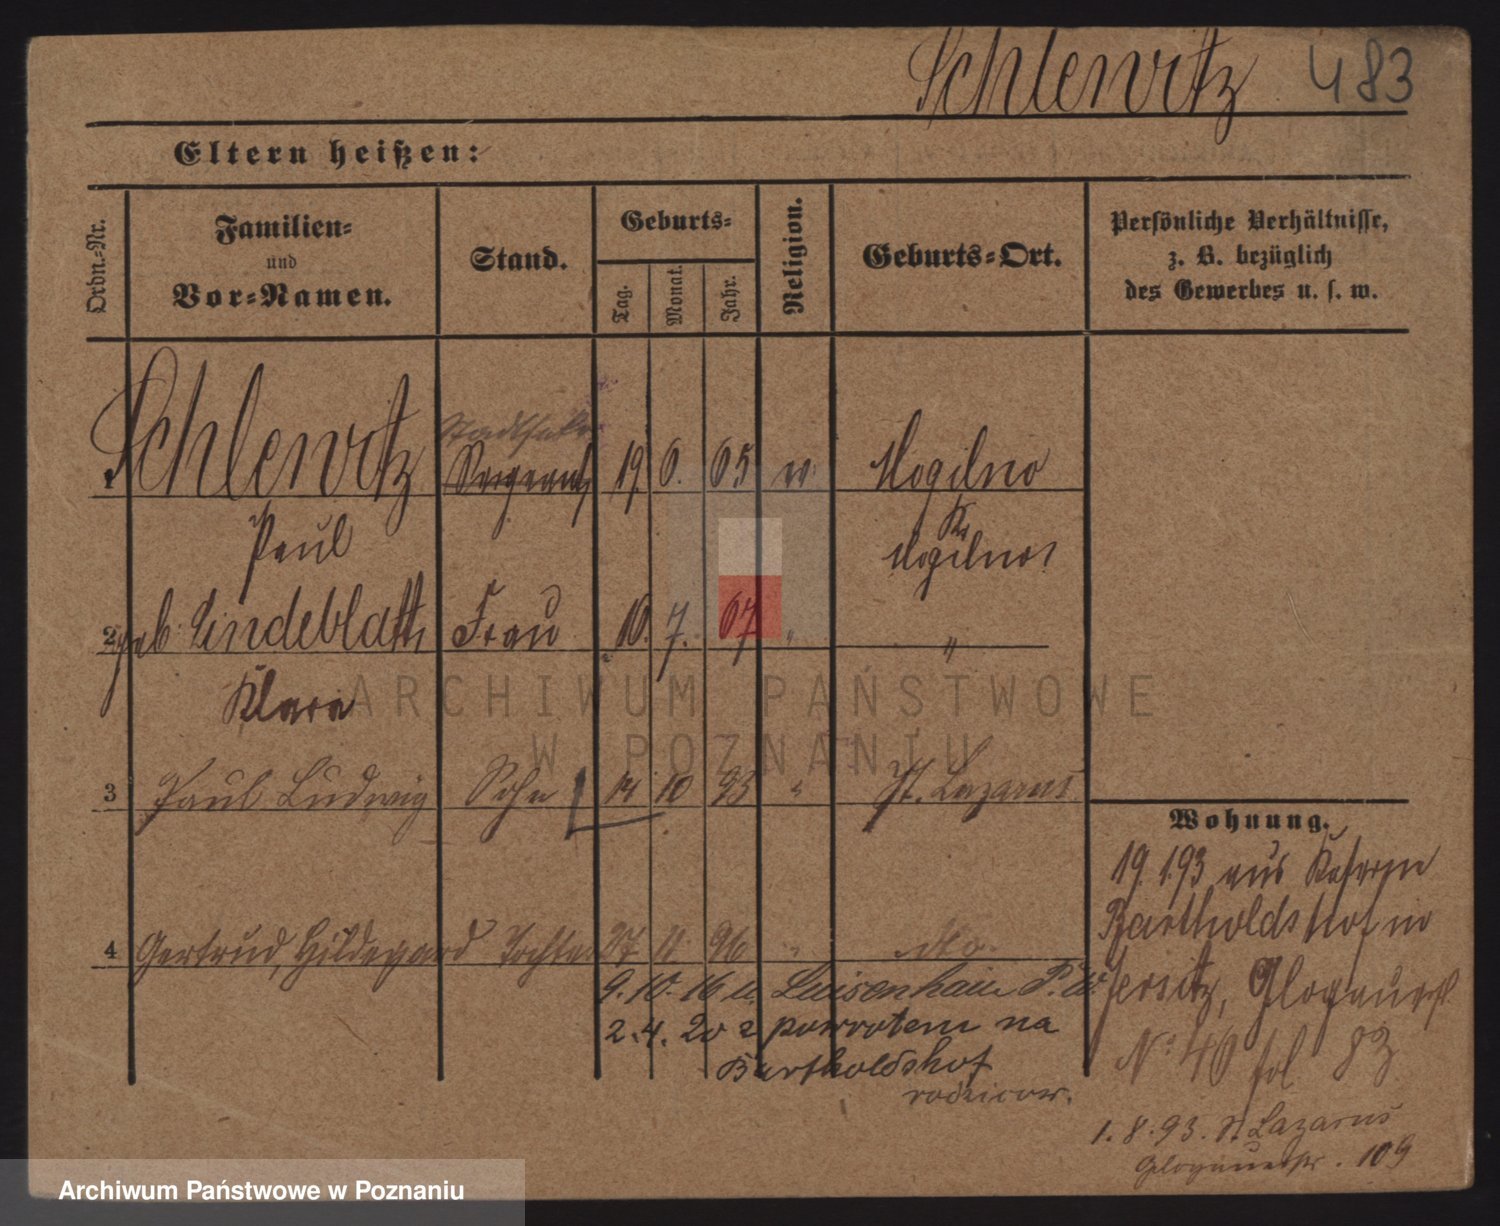 Schlewitz 483
Eltern heißen:
Ordn.-Nr.
Familien-
und
Vor-Namen.
Stand.
Geburts-
Tag.
Monat.
Jahr.
Religion.
Geburts-Ort.
Persönliche Verhältnisse,
z. B. bezüglich
des Gewerbes u. s. w.
1 Schlewitz Sergeant 19. 6. 65 Mogilno
Paul
Kr.
Mogilno
2 geb. Lindeblatt Frau 10. 7. 67 " "
Klara
3 Paul Ludwig Sohn 14 10 93 " St. Lazarus
4 Gertrud, Hildegard Tochter 27 11. 96 " do.
9. 10. 16 u. Luisenhain P. W.
2. 4. 20 z powrotem na
Bartholdshof
rodzicow.
Wohnung.
19. 1. 93 aus Kaserne
Bartholdshof in
Jersitz, Glogauerst.
No 46 fol 83
1. 8. 93. St. Lazarus
Glogauerstr. 109
ARCHIWUM PAŃSTWOWE
W POZNANIU
Archiwum Państwowe w Poznaniu